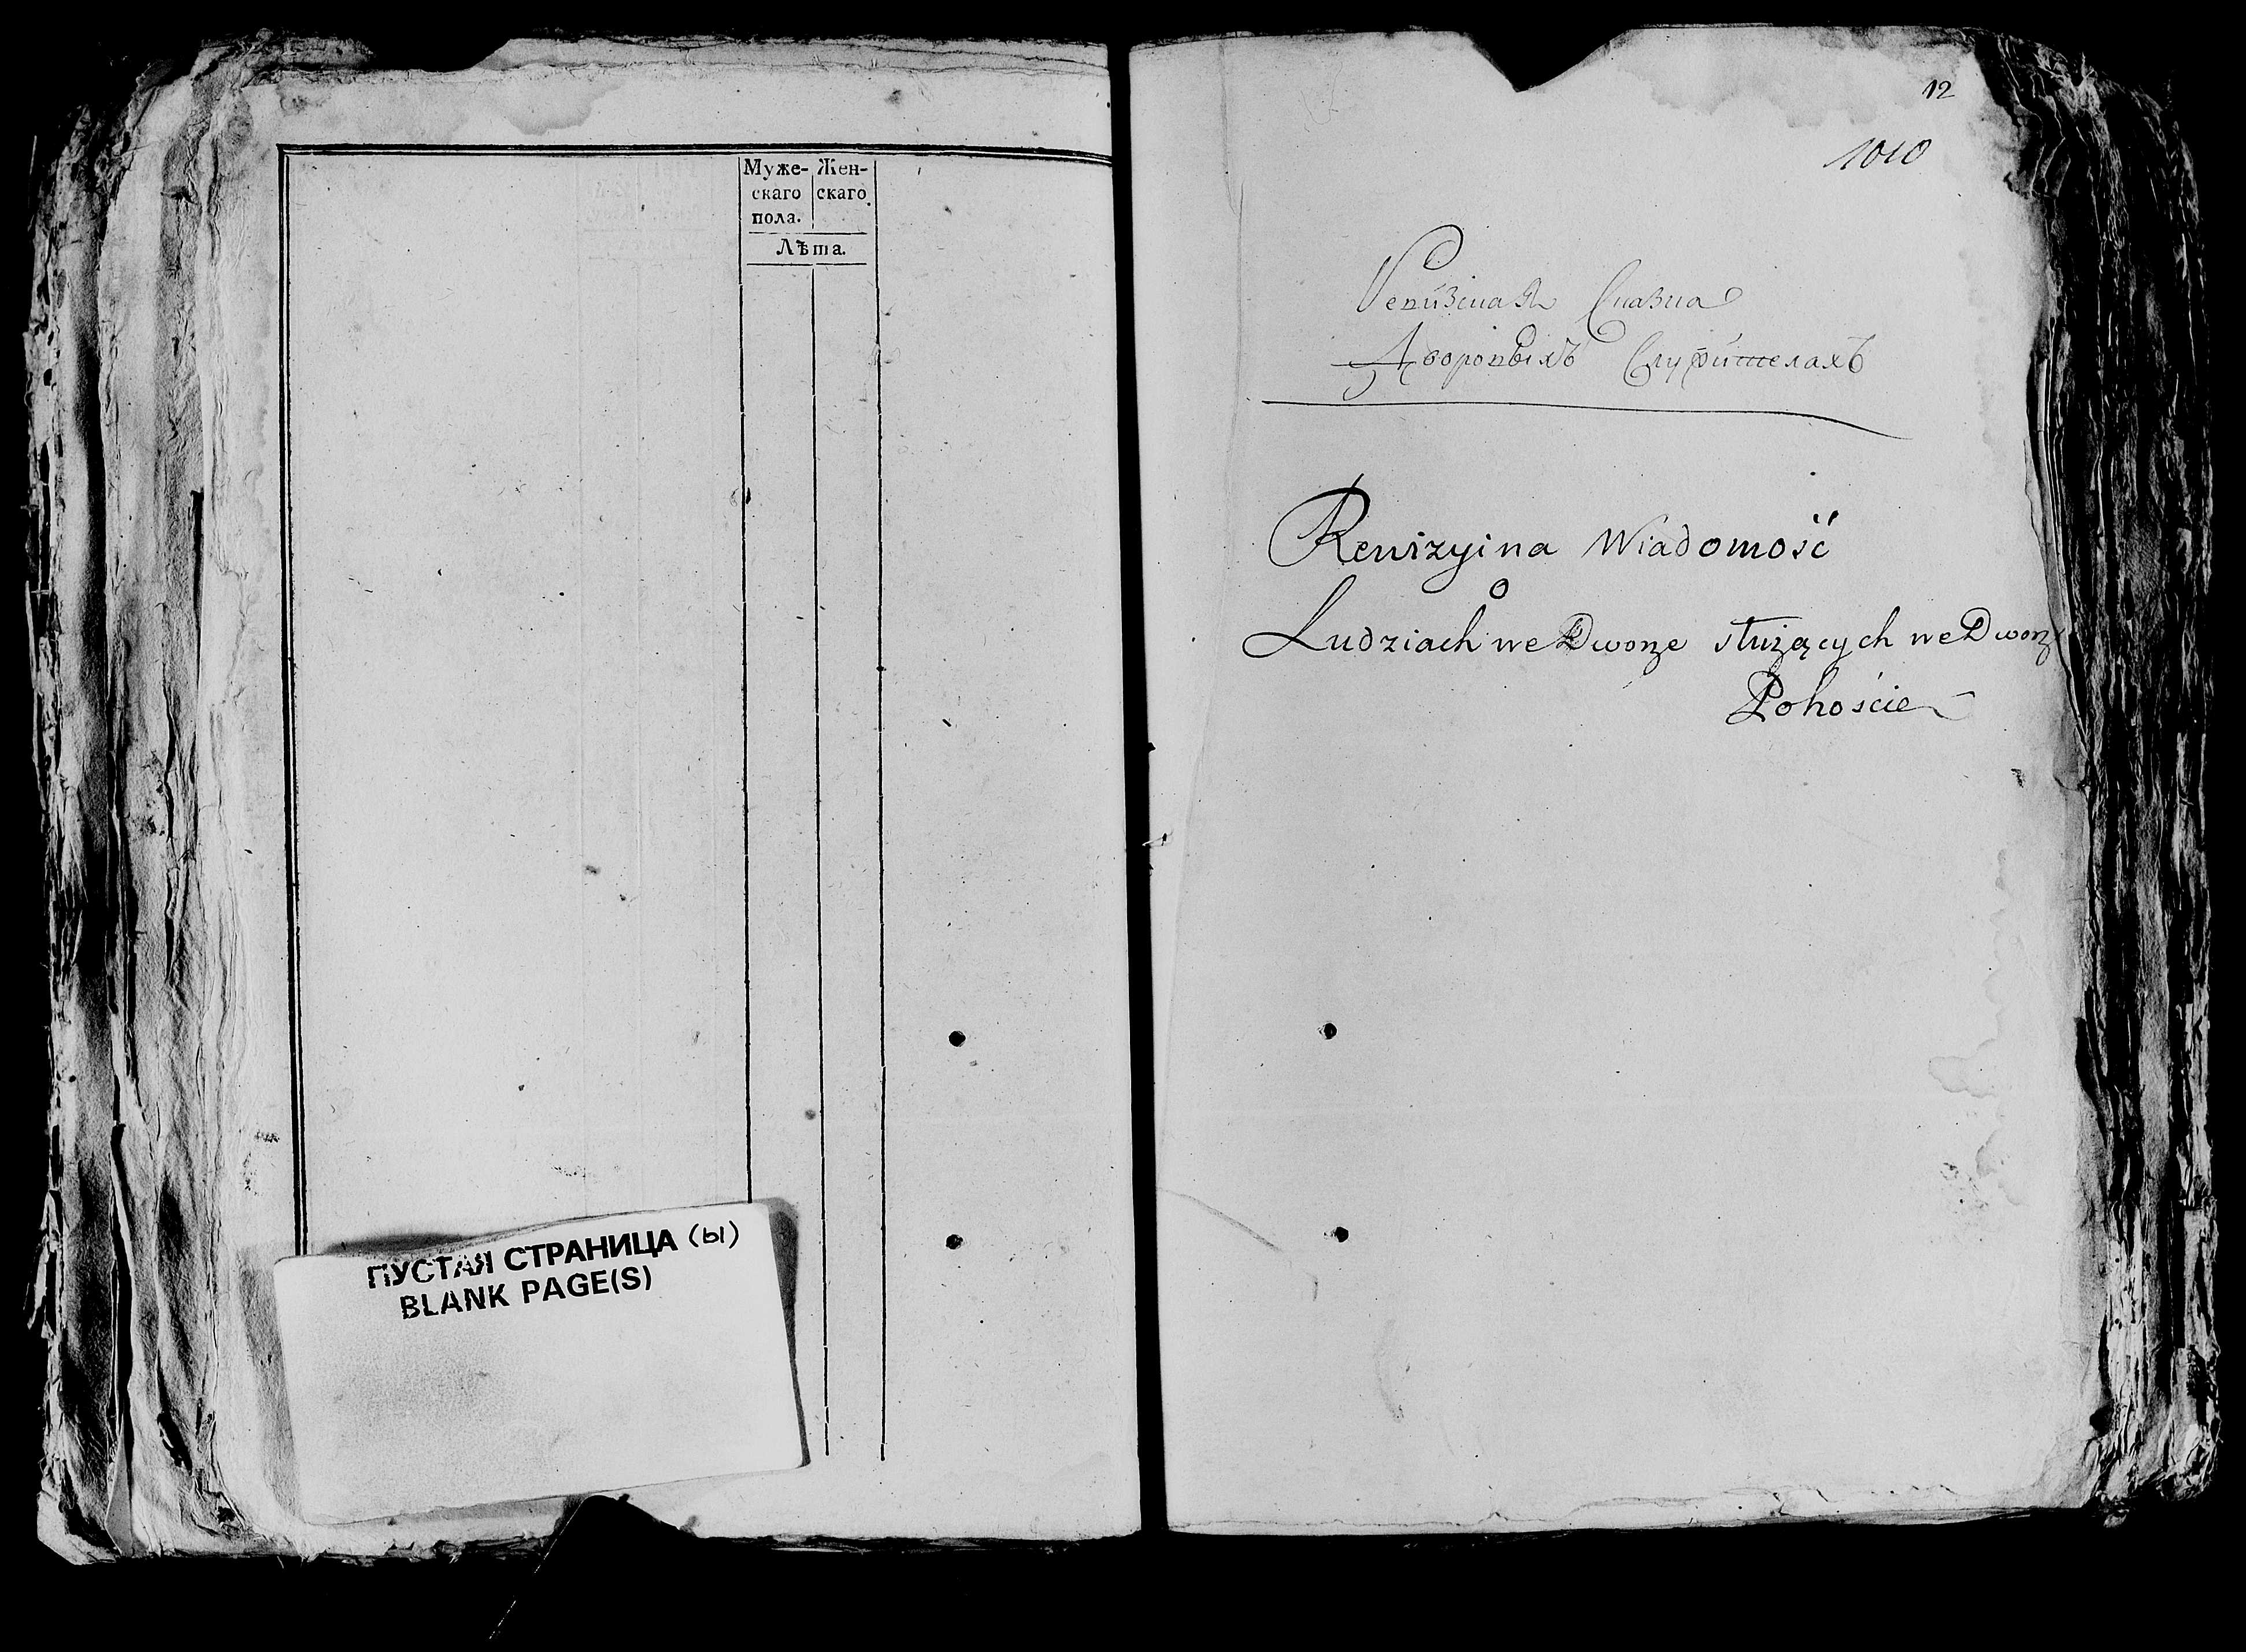 Муже- Жен-
скаго скаго
пола.
Лѣта.
ПУСТАЯ СТРАНИЦА (Ы)
BLANK PAGE(S)
12
1010
Ревизская Сказка
Дворовыхъ Служителахъ
Rewizyina Wiadomość
o
Ludziach we Dworze służących we Dworze
Pohoście